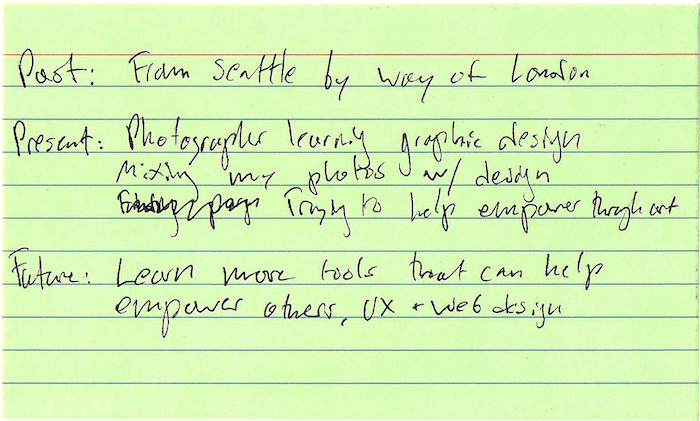 Past: From Seattle by way of London
Present: Photographer learning graphic design
Mixing my photos w/ design
Trying to help empower through art
Future: Learn more tools that can help
empower others, UX + web design